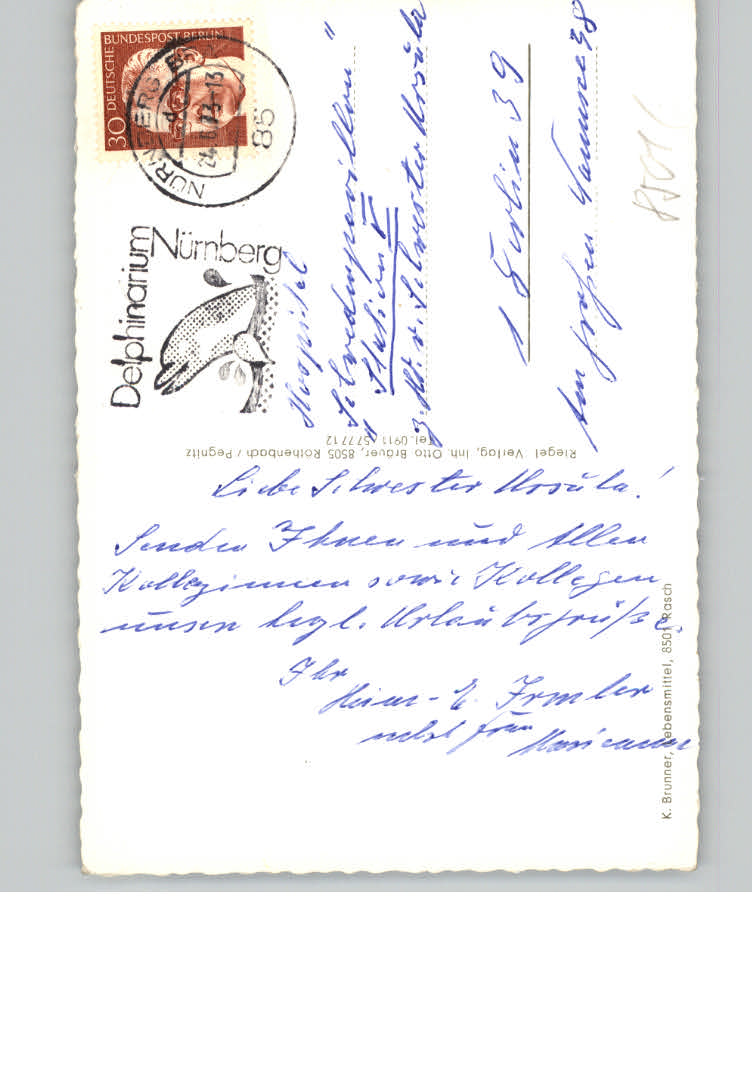 30 DEUTSCHE BUNDESPOST BERLIN
NÜRNBERG
73-13
85
Delphinarium
Nürnberg
Hospital
"Schwedenpavillon"
" Station V
z. Hd. v. Schwester Ursula
1 Berlin 39
Am großen Wannsee 38
8501
Riegel Verlag, Inh. Otto Bräuer, 8505 Röthenbach / Pegnitz
Tel. 0911 / 577712
Liebe Schwester Ursula!
Senden Ihnen und Allen
Kolleginnen sowie Kollegen
unsere hzgl. Urlaubsgrüße.
Ihr
Heinz-E. Irmler
nebst Frau Marianne
K. Brunner, Lebensmittel, 8501 Rasch